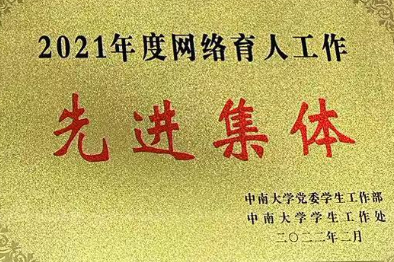 2021年度网络育人工作
先进集体
中南大学党委学生工作部
中南大学学生工作处
二〇二二年二月